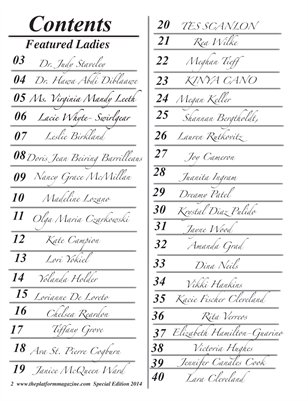 Contents
Featured Ladies
03 Dr. Judy Staveley
04 Dr. Hawa Abdi Diblaawe
05 Ms. Virginia Mandy Leeth
06 Lacie Whyte- Swirlgear
07 Leslie Birkland
08 Doris Jean Beiring Barrilleaux
09 Nancy Grace McMillan
10 Madeline Lozano
11 Olga Maria Czarkowski
12 Kate Campion
13 Lori Yokiel
14 Yolanda Holder
15 Lorianne De Loreto
16 Chelsea Reardon
17 Tiffany Grove
18 Ava St. Pierre Cogburn
19 Janice McQueen Ward
2 www.theplatformmagazine.com Special Edition 2014
20 TES SCANLON
21 Rea Wilke
22 Meghan Tieff
23 KINYA CANO
24 Megan Keller
25 Shannon Bergtholdt,
26 Lauren Rutkovitz
27 Joy Cameron
28 Juanita Ingram
29 Dreamy Patel
30 Krystal Diaz Pulido
31 Jayne Wood
32 Amanda Grad
33 Dina Neils
34 Vikki Hankins
35 Kacie Fischer Cleveland
36 Rita Verreos
37 Elizabeth Hamilton-Guarino
38 Victoria Hughes
39 Jennifer Canales Cook
40 Lara Cleveland